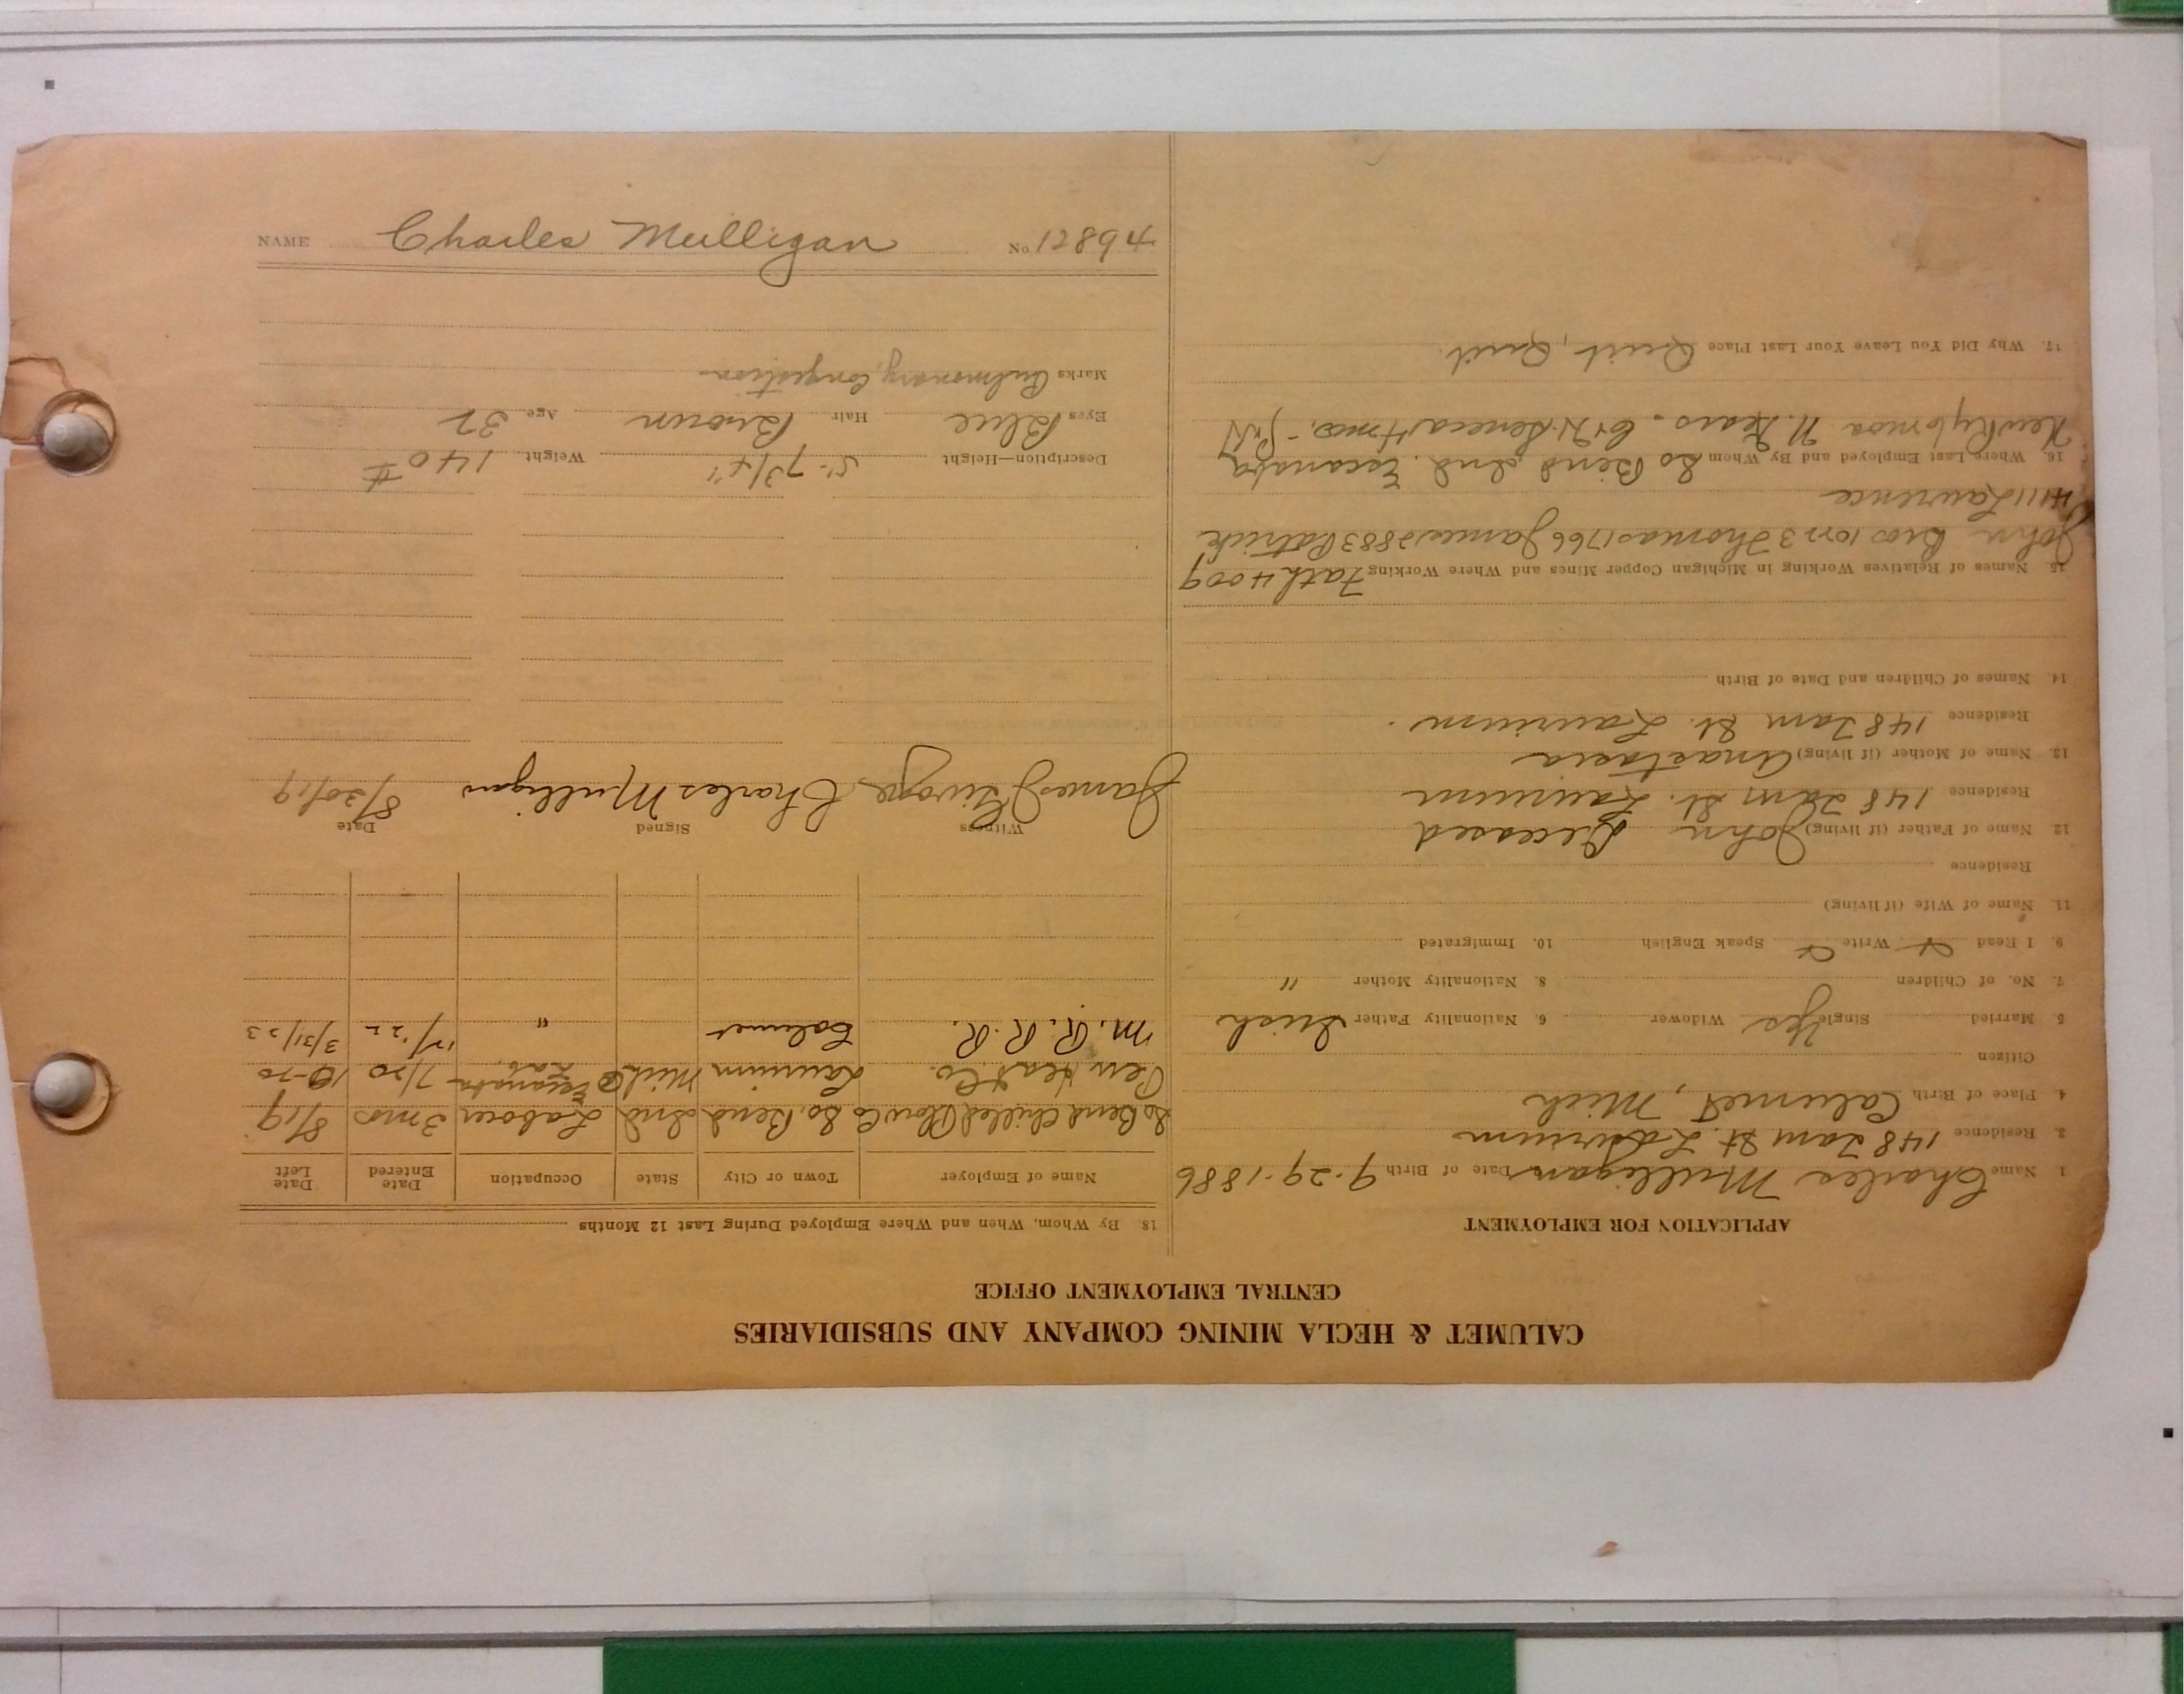 CALUMET & HECLA MINING COMPANY AND SUBSIDIARIES
CENTRAL EMPLOYMENT OFFICE
APPLICATION FOR EMPLOYMENT
1. Name Charles Mulligan Date of Birth 9-29-1886
2. Residence 148 Tam St. Laurium
4. Place of Birth Calumet, Mich
Citizen
5. Married Single Yes Widower 6. Nationality Father Irish
7. No. of Children 8. Nationality Mother "
9. I Read Write Speak English 10. Immigrated
11. Name of Wife (if living)
Residence
12. Name of Father (if living) John Deceased
Residence 148 Tam St. Laurium
13. Name of Mother (if living) Anastasia
Residence 148 Tam St. Laurium.
14. Names of Children and Date of Birth
15. Names of Relatives Working in Michigan Copper Mines and Where Working Fath 4009
John Bros Thomas 1766 James 2883 Patrick
4111 Lawrence
16. Where Last Employed and By Whom So Bend Ind. Escanaba
N. Seneca 4 mos.
17. Why Did You Leave Your Last Place Quit, Quit.
18. By Whom, When and Where Employed During Last 12 Months
Name of Employer Town or City State Occupation Date Entered Date Left
So Bend Chilled Plow Co So. Bend Ind Labour 3 mos 8/19
Pen Co. Laurium Mich Escanaba Lab. 7/20 10-20
M. R. R. R. Calumet " 12/'22 3/31/23
Witness Signed Date
James Charles Mulligan 8/20/19
Description—Height 5'-7 3/4" Weight 140 #
Eyes Blue Hair Brown Age 32
Marks Pulmonary Congestion
NAME Charles Mulligan No 12894